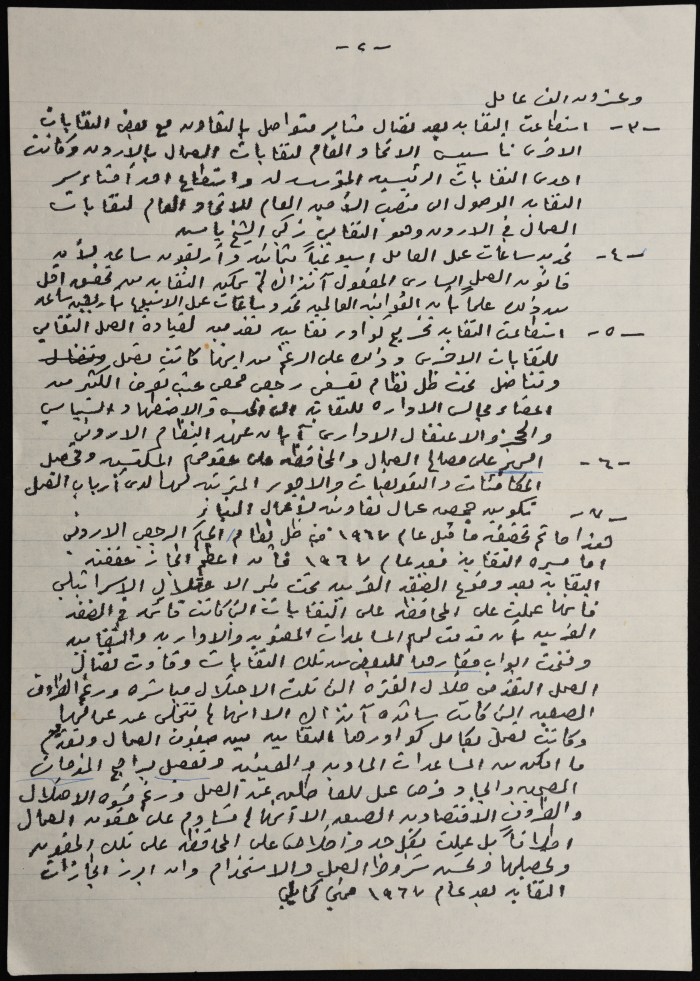 - ٢ -
وعشرون الف عامل
-٣- استطاعت النقابه بعد نضال مثابر متواصل بالتعاون مع بعض النقابات
الاخرى تأسيس الاتحاد العام لنقابات العمال بالاردن وكانت
احدى النقابات الرئيسيه المؤسسه له واستطاع احد أمناء سر
النقابه الوصول الى منصب الأمين العام للاتحاد العام لنقابات
العمال في الاردن وهو النقابي زكي الشيخ ياسين
-٤- تحديد ساعات عمل العامل اسبوعياً بثمانيه وأربعون ساعه لأن
قانون العمل الساري المفعول آنذاك لم تمكن النقابه من تحقيق اقل
من ذلك علماً بأن القوانين العالميه تحدد ساعات عمل الاسبوع باربعين ساعه
-٥- استطاعت النقابه تخريج كوادر نقابيه تقدميه لقيادة العمل النقابي
للنقابات الاخرى وذلك على الرغم من انها كانت تعمل
وتناضل تحت ظل نظام تعسفي رجعي قمعي حيث تعرض الكثير من
اعضاء مجالس الاداره للنقابه الى الحبس والاضطهاد السياسي
والحجز والاعتقال الاداري آبان عهد النظام الاردني
-٦- السهر على مصالح العمال والمحافظه على حقوقهم المكتسبه وتحصيل
المكافئات والتعويضات والاجور المترتبه لهم لدى أرباب العمل
-٧- تكوين جمعيه عمال تعاونيه لأعمال البناء
هذا ما تم تحقيقه ما قبل عام ١٩٦٧ في ظل نظام الحكم الرجعي الاردني
اما مسيره النقابه فبعد عام ١٩٦٧ فان اعظم انجاز حققته
النقابه بعد وقوع الضفه الغربيه تحت نير الاحتلال الاسرائيلي
فانها عملت على المحافظه على النقابات التي كانت قائمه في الضفه
الغربيه بأن قدمت لهم المساعدات المعنويه والاداريه والنقابيه
وفتحت ابواب مقارها للبعض من تلك النقابات وقادت نضال
العمل النقابي خلال الفتره التي تلت الاحتلال مباشره ورغم الظروف
الصعبه التي كانت سائده آنذاك الا انها لم تتخلى عن عمالها
وكانت تعمل بكامل كوادرها النقابيه بين صفوف العمال وتقديم
ما امكن من المساعدات الماديه والعينيه وتفعيل برامج الخدمات
الصحيه وايجاد فرص عمل للعاطلين عن العمل ورغم قسوه الاحتلال
والظروف الاقتصاديه الصعبه الا أنها لم تساوم على حقوق العمال
اطلاقاً بل عملت بكل جد واخلاص على المحافظه على تلك الحقوق
وتحصيلها وتحسين شروط العمل والاستخدام وان ابرز انجازات
النقابه بعد عام ١٩٦٧ هي كما يلي